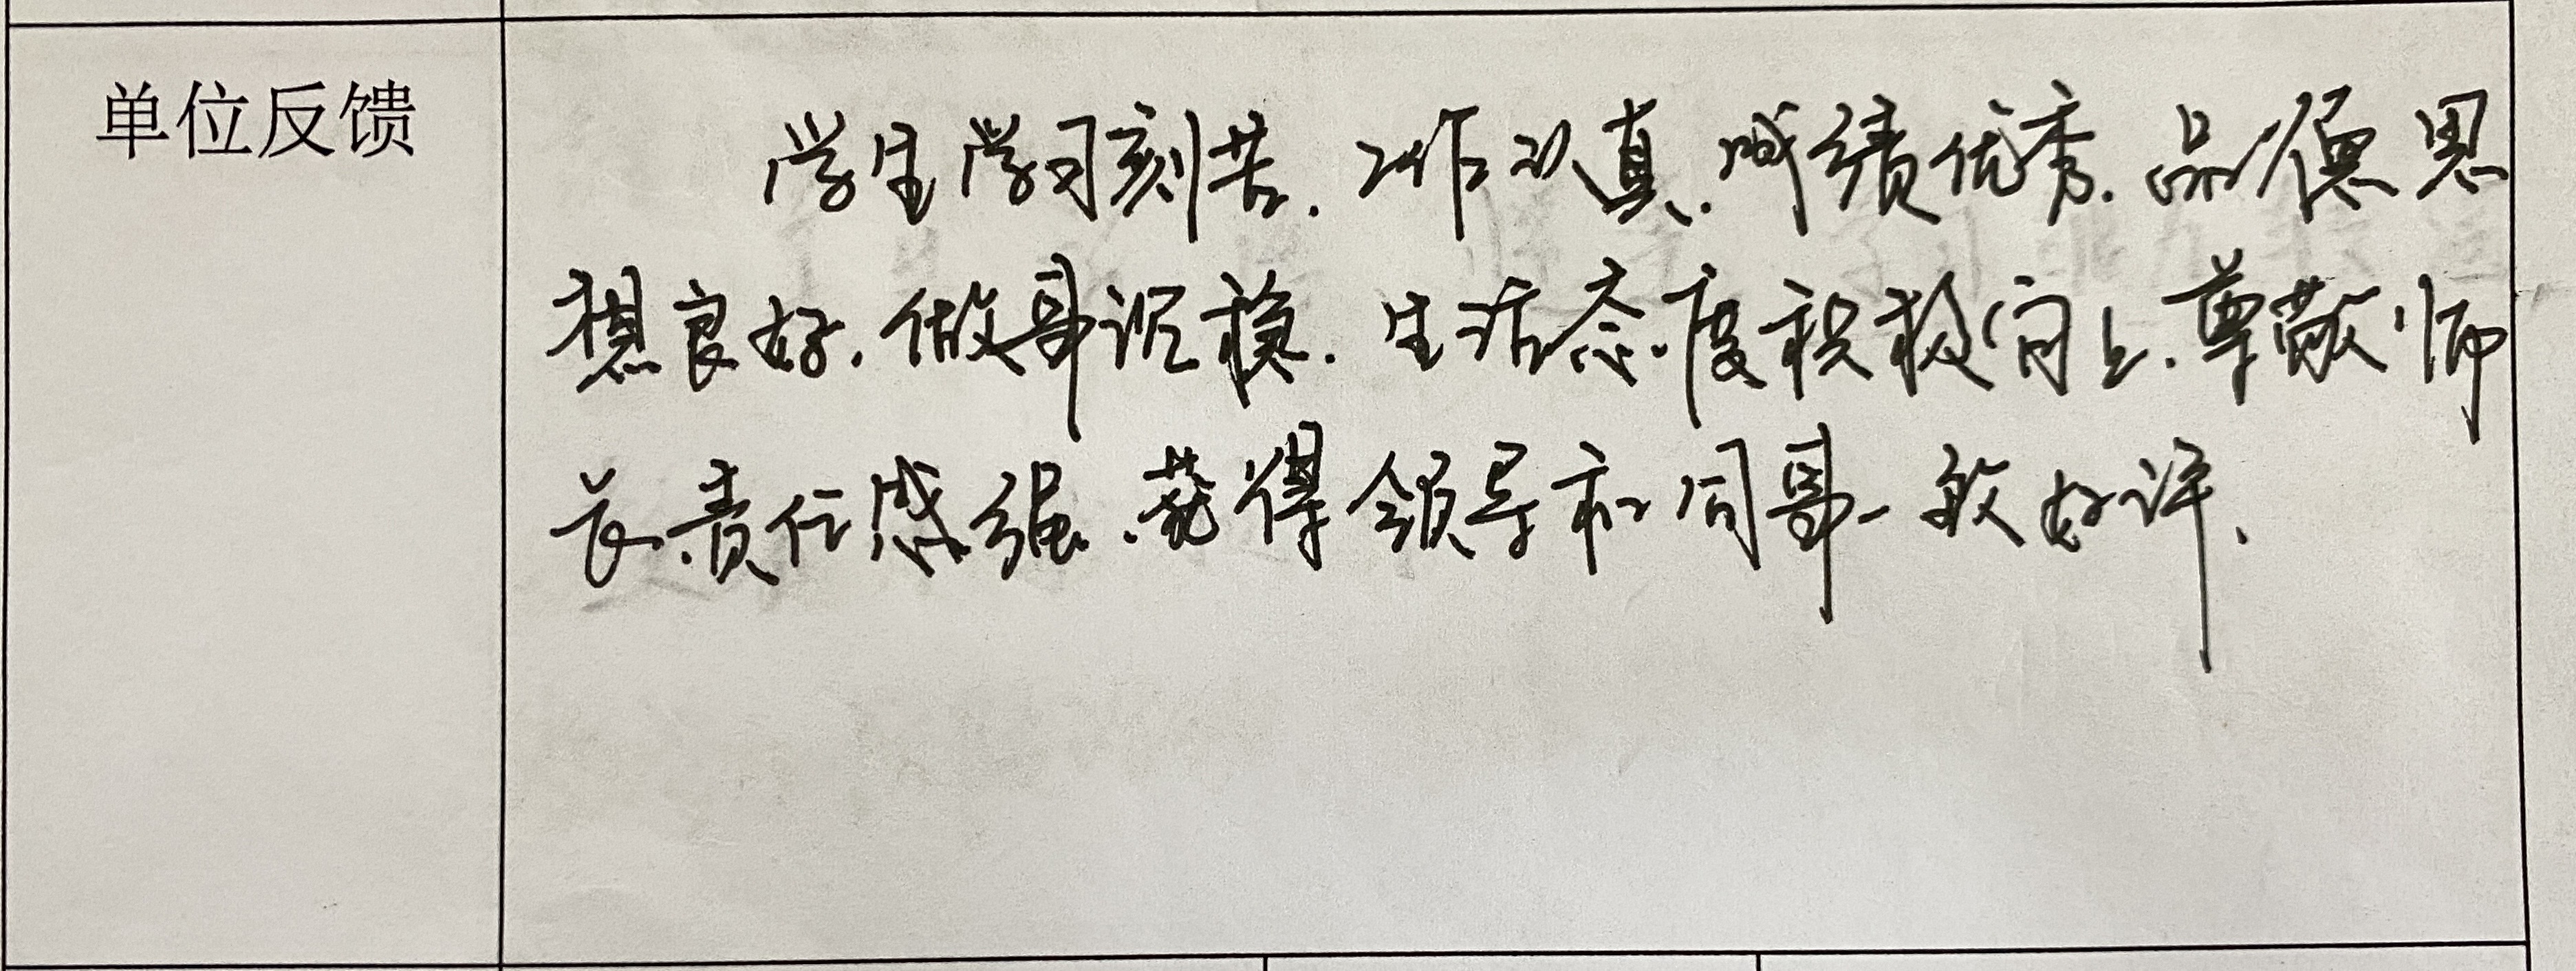 单位反馈
学生学习刻苦.工作认真.成绩优秀.品德思
想良好.做事沉稳.生活态度积极向上.尊敬师
长责任感强.获得领导和同事一致好评.